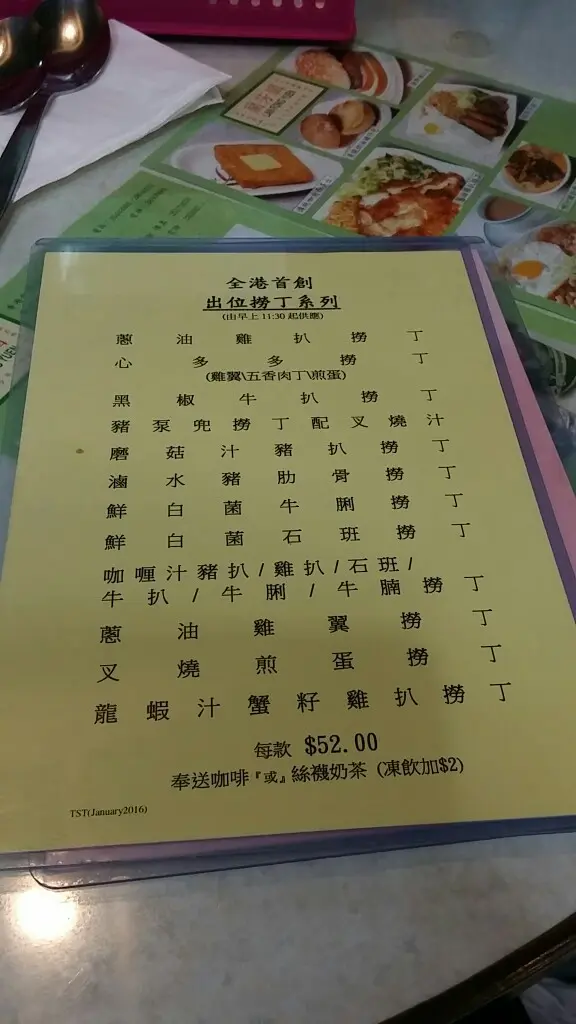 全港首創
出位撈丁系列
(由早上 11:30 起供應)
蔥油雞扒撈丁
心多多撈丁
(雞翼\五香肉丁\煎蛋)
黑椒牛扒撈丁
豬泵兜撈丁配叉燒汁
磨菇汁豬扒撈丁
滷水豬肋骨撈丁
鮮白菌牛脷撈丁
鮮白菌石班撈丁
咖喱汁豬扒/雞扒/石班/
牛扒/牛脷/牛腩撈丁
蔥油雞翼撈丁
叉燒煎蛋撈丁
龍蝦汁蟹籽雞扒撈丁
每款 $52.00
奉送咖啡『或』絲襪奶茶 (凍飲加$2)
TST(January2016)